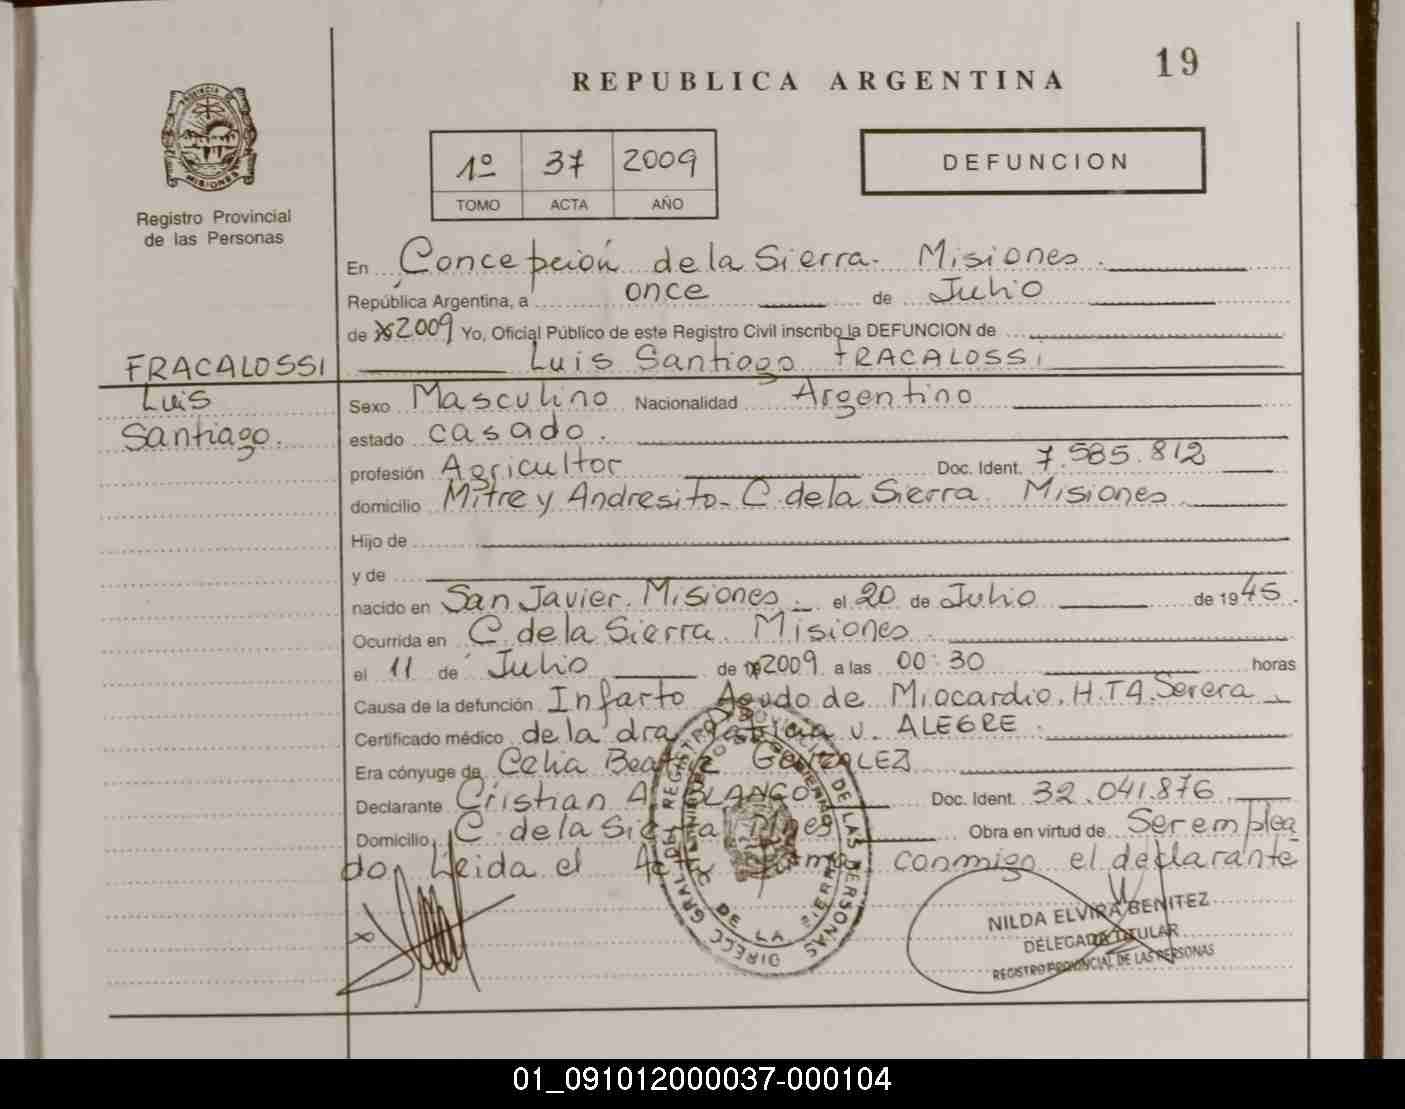 19
REPUBLICA ARGENTINA
PROVINCIA DE
MISIONES
Registro Provincial
de las Personas
1º 37 2009
TOMO ACTA AÑO
DEFUNCION
En Concepción de la Sierra. Misiones.
República Argentina, a once de Julio
de 2009 Yo, Oficial Público de este Registro Civil inscribo la DEFUNCION de
FRACALOSSI Luis Santiago FRACALOSSI
Luis
Santiago.
Sexo Masculino Nacionalidad Argentino
estado casado.
profesión Agricultor Doc. Ident. 7.585.812
domicilio Mitre y Andresito - C. de la Sierra. Misiones
Hijo de
y de
nacido en San Javier. Misiones el 20 de Julio de 1945.
Ocurrida en C. de la Sierra. Misiones
el 11 de Julio de 2009 a las 00:30 horas
Causa de la defunción Infarto Agudo de Miocardio. H.T.A. Severa
Certificado médico de la dra V. ALEGRE.
Era cónyuge de Celia Beatriz GONZALEZ
Declarante Cristian A. BLANCO Doc. Ident. 32.041.876
Domicilio C. de la Sierra Mnes Obra en virtud de Ser emplea
do, Leida el Acta firma conmigo el declarante
DIRECC. GRAL. DEL REGISTRO PROVINCIAL DE LAS PERSONAS
NILDA ELVIRA BENITEZ
DELEGADA TITULAR
REGISTRO PROVINCIAL DE LAS PERSONAS
01_091012000037-000104